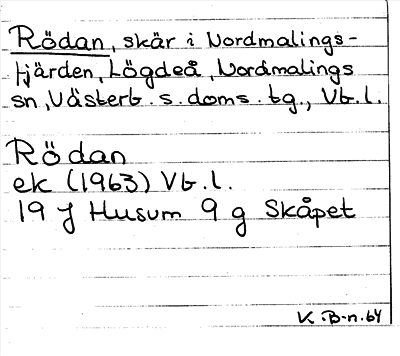 Rödan, skär i Nordmalings-
fjärden, Lögdeå, Nordmalings
sn, Västerb. s. doms. tg., Vb. l.
Rödan
ek (1963) Vb. l.
19 J Husum 9 g Skåpet
K. B-n. 64